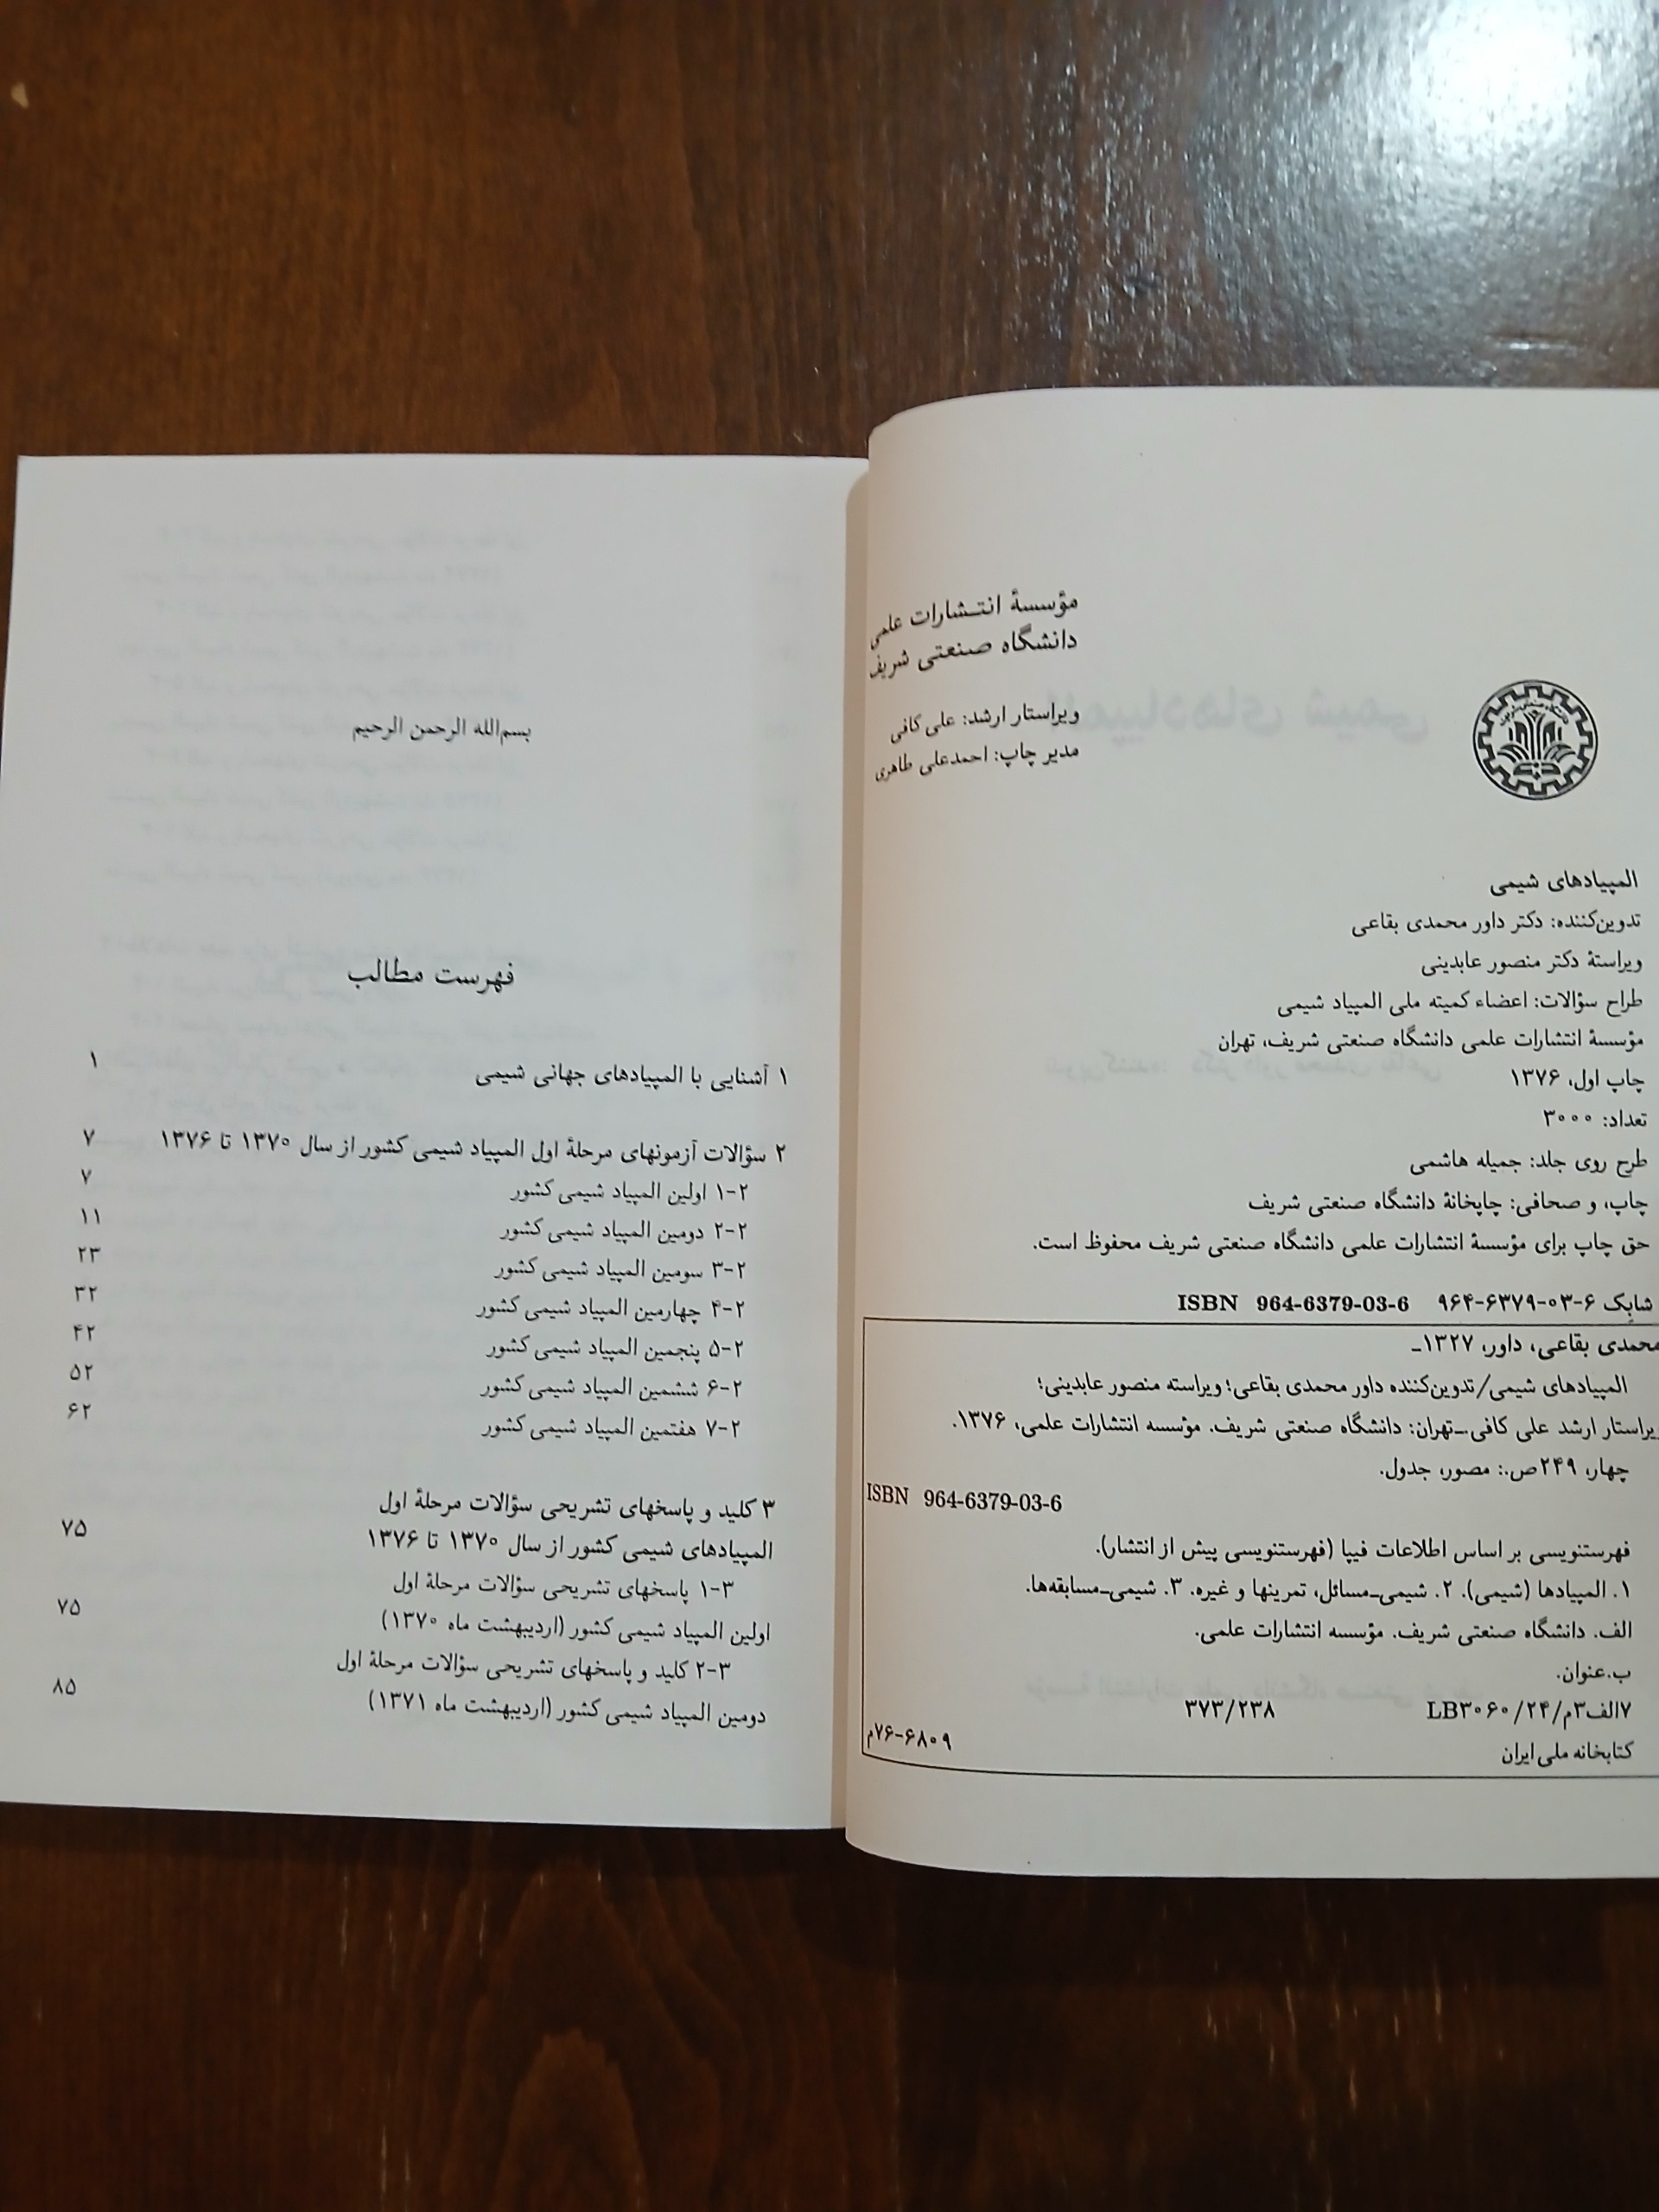 مؤسسهٔ انتشارات علمی
دانشگاه صنعتی شریف
ویراستار ارشد: علی کافی
مدیر چاپ: احمدعلی طاهری
المپیادهای شیمی
تدوین‌کننده: دکتر داور محمدی بقاعی
ویراستهٔ دکتر منصور عابدینی
طراح سؤالات: اعضاء کمیته ملی المپیاد شیمی
مؤسسهٔ انتشارات علمی دانشگاه صنعتی شریف، تهران
چاپ اول، ۱۳۷۶
تعداد: ۳۰۰۰
طرح روی جلد: جمیله هاشمی
چاپ، و صحافی: چاپخانهٔ دانشگاه صنعتی شریف
حق چاپ برای مؤسسهٔ انتشارات علمی دانشگاه صنعتی شریف محفوظ است.
شابک ۶-۰۳-۶۳۷۹-۹۶۴ ISBN 964-6379-03-6
محمدی بقاعی، داور، ۱۳۲۷ـ
المپیادهای شیمی/تدوین‌کننده داور محمدی بقاعی؛ ویراسته منصور عابدینی؛
ویراستار ارشد علی کافی.ـتهران: دانشگاه صنعتی شریف. مؤسسه انتشارات علمی، ۱۳۷۶.
چهار، ۲۴۹ص.: مصور، جدول.
ISBN 964-6379-03-6
فهرستنویسی بر اساس اطلاعات فیپا (فهرستنویسی پیش از انتشار).
۱. المپیادها (شیمی). ۲. شیمی‌ـمسائل، تمرینها و غیره. ۳. شیمی‌ـمسابقه‌ها.
الف. دانشگاه صنعتی شریف. مؤسسه انتشارات علمی.
ب.عنوان.
۷الف۳م/۲۴/LB۳۰۶۰ ۳۷۳/۲۳۸
کتابخانه ملی ایران ۷۶-۶۸۰۹م
بسم‌الله الرحمن الرحیم
فهرست مطالب
۱ آشنایی با المپیادهای جهانی شیمی ۱
۲ سؤالات آزمونهای مرحلهٔ اول المپیاد شیمی کشور از سال ۱۳۷۰ تا ۱۳۷۶ ۷
۲-۱ اولین المپیاد شیمی کشور ۷
۲-۲ دومین المپیاد شیمی کشور ۱۱
۲-۳ سومین المپیاد شیمی کشور ۲۳
۲-۴ چهارمین المپیاد شیمی کشور ۳۲
۲-۵ پنجمین المپیاد شیمی کشور ۴۲
۲-۶ ششمین المپیاد شیمی کشور ۵۲
۲-۷ هفتمین المپیاد شیمی کشور ۶۲
۳ کلید و پاسخهای تشریحی سؤالات مرحلهٔ اول
المپیادهای شیمی کشور از سال ۱۳۷۰ تا ۱۳۷۶ ۷۵
۳-۱ پاسخهای تشریحی سؤالات مرحلهٔ اول
اولین المپیاد شیمی کشور (اردیبهشت ماه ۱۳۷۰) ۷۵
۳-۲ کلید و پاسخهای تشریحی سؤالات مرحلهٔ اول
دومین المپیاد شیمی کشور (اردیبهشت ماه ۱۳۷۱) ۸۵